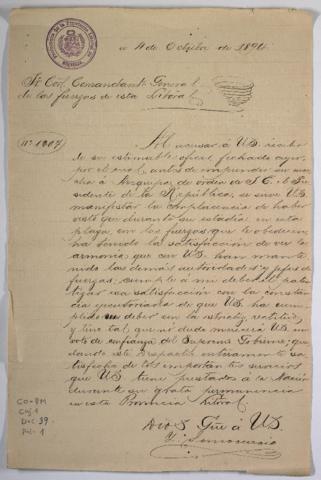 a 4 de Octubre de 1894.
Sr Crnl. Comandante General
de las fuerzas de esta Litoral
Nº 1007
Al acusar á US. recibo
de su estimable oficio fechado ayer,
por el cual, antes de emprender su mar-
cha á Arequipa de orden de S.E. el Pre-
sidente de la República, se sirve US.
manifestar la complacencia de haber
visto que durante su estadía en esta
plaza, con las fuerzas que le obedecen
ha tenido la satisfacción de ver la
armonia que con US. han mante-
nido las demás autoridades y jefes de
fuerzas, cumple á mi deber
tizar esa satisfacción con la constan-
cia de que US. ha cum-
plido su deber con la rectitud
y tino tal, que no dudo merecerá US. un
voto de confianza del Supremo Gobierno; que-
dando este Despacho enteramente sa-
tisfecho de los importantes servicios
que US. tiene prestados á la Nación
durante su grata permanencia
en esta Provincia Litoral.
Dios Gue á US.
CO-PM
Caj. 1
Doc. 39
Fol. 1